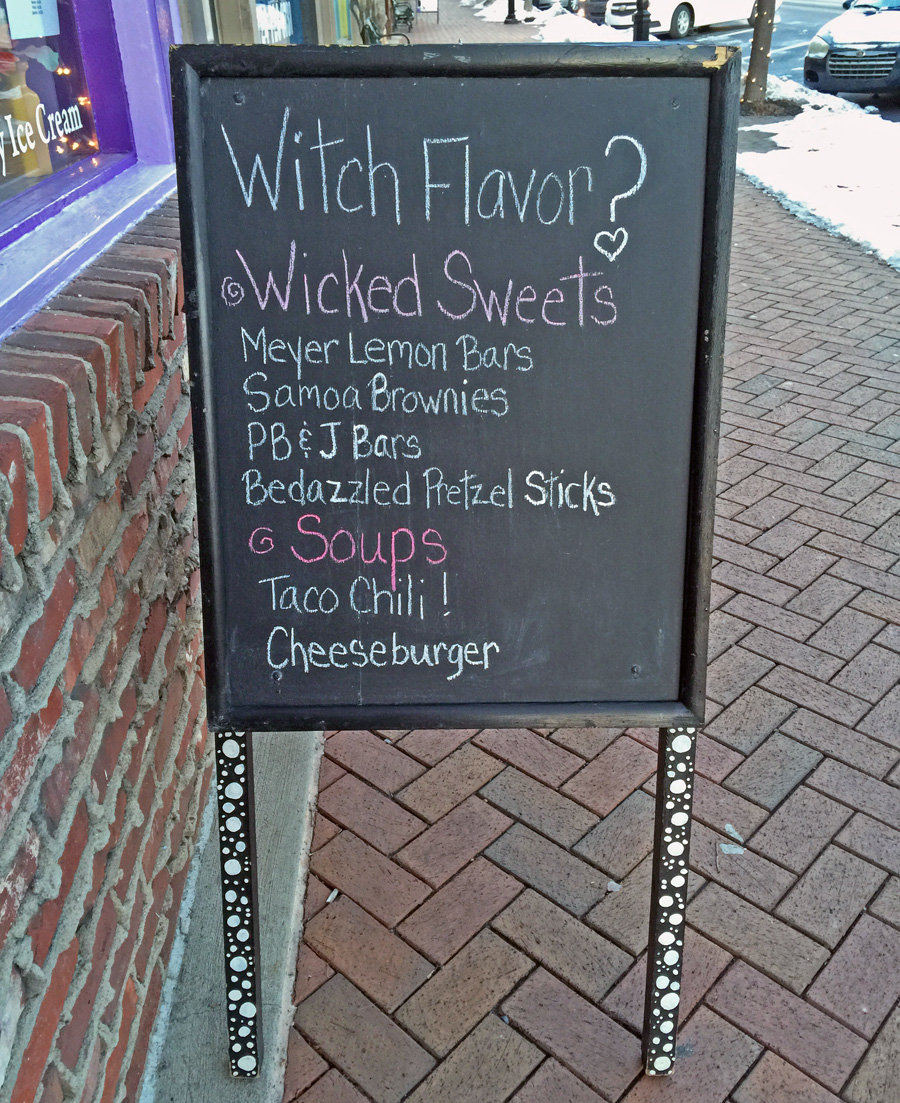 y Ice Cream
Witch Flavor?
Wicked Sweets
Meyer Lemon Bars
Samoa Brownies
PB & J Bars
Bedazzled Pretzel Sticks
Soups
Taco Chili !
Cheeseburger